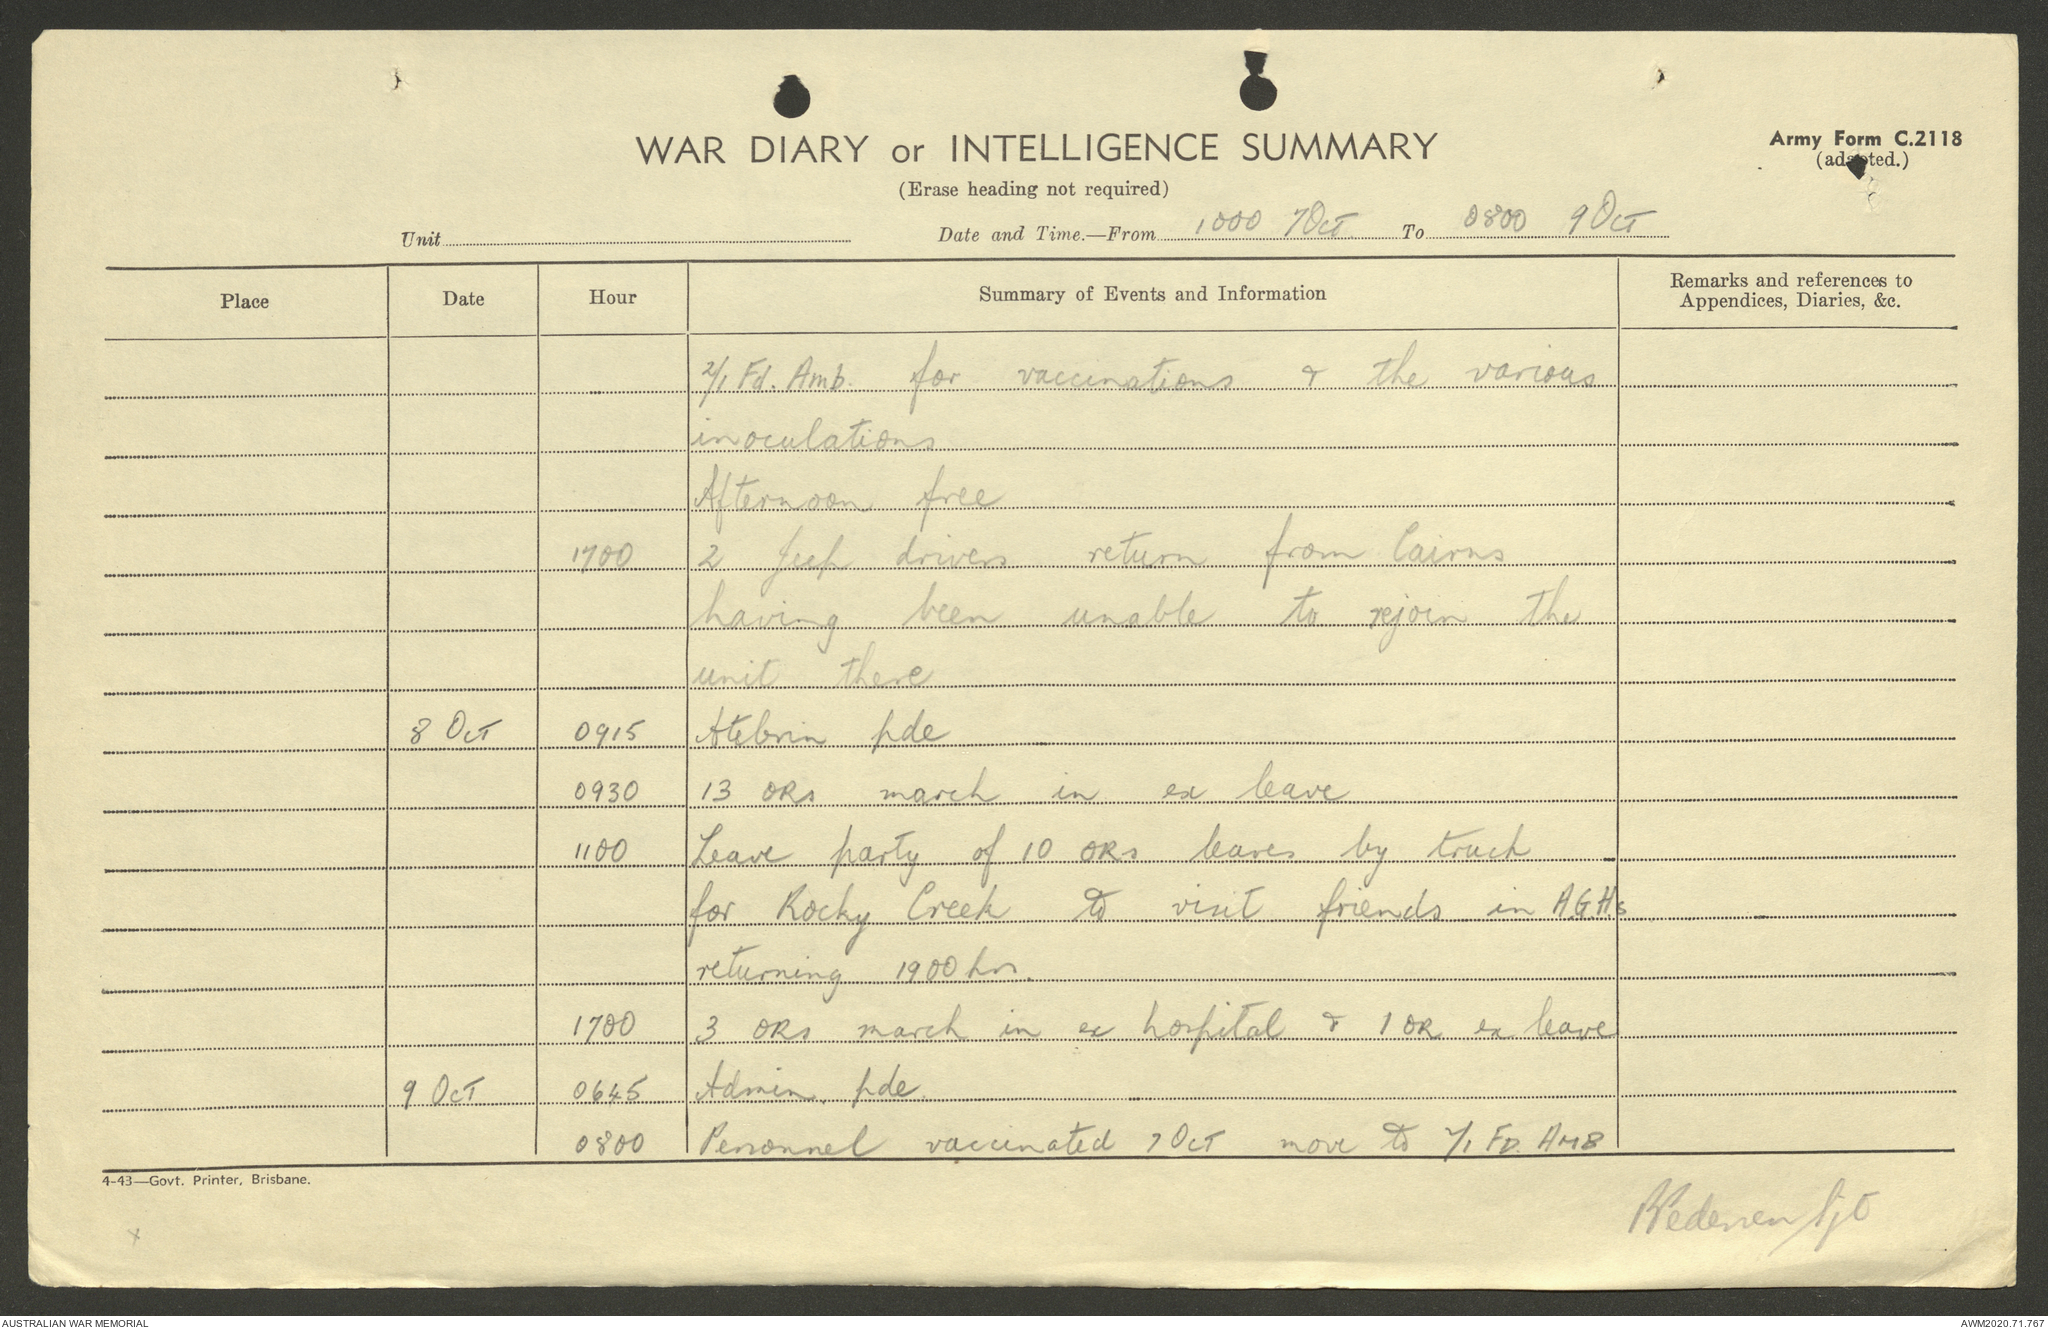 WAR DIARY or INTELLIGENCE SUMMARY
Army Form C.2118
(adapted.)
(Erase heading not required)
Unit
Date and Time.—From 1000 7 Oct To 0800 9 Oct
Place Date Hour Summary of Events and Information Remarks and references to Appendices, Diaries, &c.
2/1 Fd. Amb. for vaccinations & the various
inoculations
Afternoon free
1700 2 Jeep drivers return from Cairns
having been unable to rejoin the
unit there
8 Oct 0915 Atebrin pde
0930 13 ORs march in ex leave
1100 Leave party of 10 ORs leaves by truck
for Rocky Creek to visit friends in A.G.Hs
returning 1900 hrs.
1700 3 ORs march in ex hospital & 1 OR ex leave
9 Oct 0645 Admin. pde.
0800 Personnel vaccinated 7 Oct move to 2/1 FD. AMB
4-43—Govt. Printer, Brisbane.
AUSTRALIAN WAR MEMORIAL
AWM2020.71.767